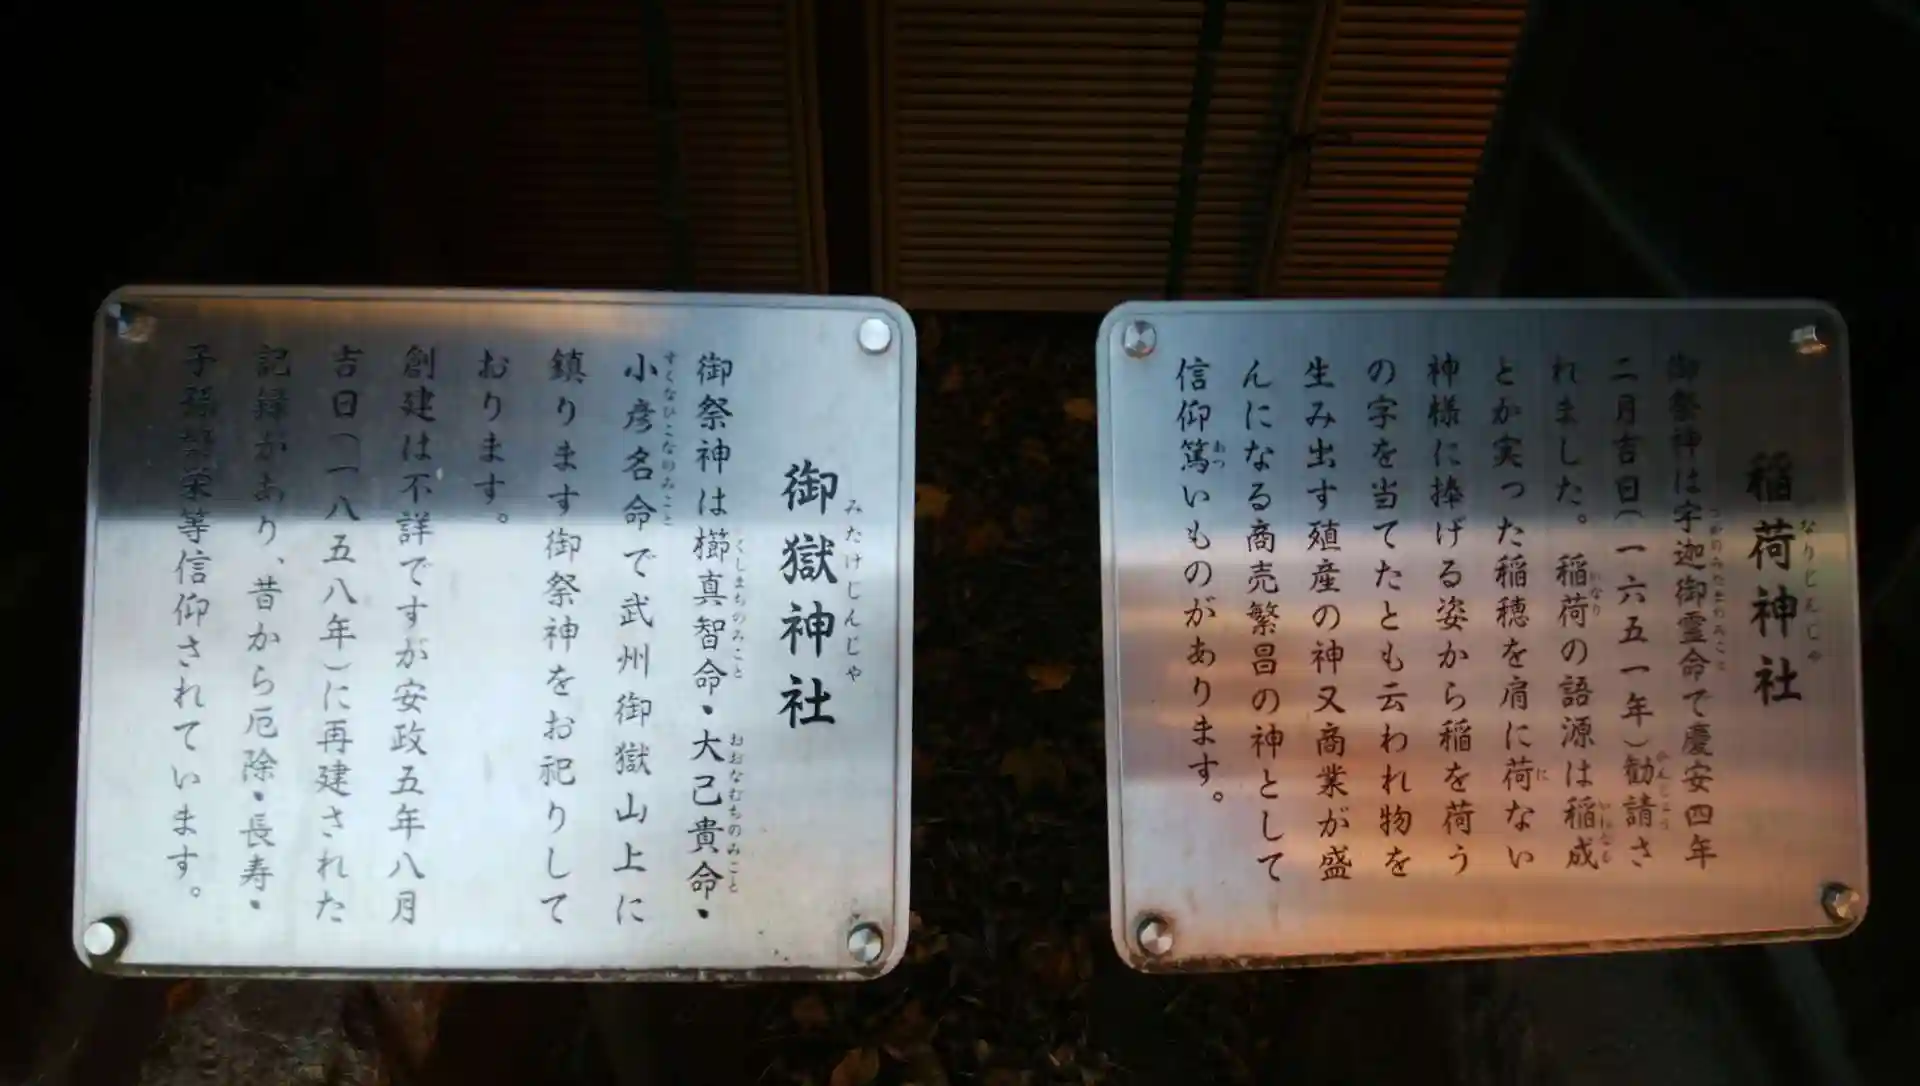 稲荷神社
なりじんじゃ
御祭神は宇迦御霊命で慶安四年
うかのみたまのみこと
二月吉日(一六五一年)勧請さ
かんじょう
れました。稲荷の語源は稲成
いなり
いねなる
とか実った稲穂を肩に荷ない
に
神様に捧げる姿から稲を荷う
の字を当てたとも云われ物を
生み出す殖産の神又商業が盛
んになる商売繁昌の神として
信仰篤いものがあります。
あつ
御獄神社
みたけじんじゃ
御祭神は櫛真智命・大己貴命・
くしまちのみこと
おおなむちのみこと
小彦名命で武州御獄山上に
すくなひこなのみこと
鎮ります御祭神をお祀りして
おります。
創建は不詳ですが安政五年八月
吉日(一八五八年)に再建された
記録があり、昔から厄除・長寿・
子孫繁栄等信仰されています。